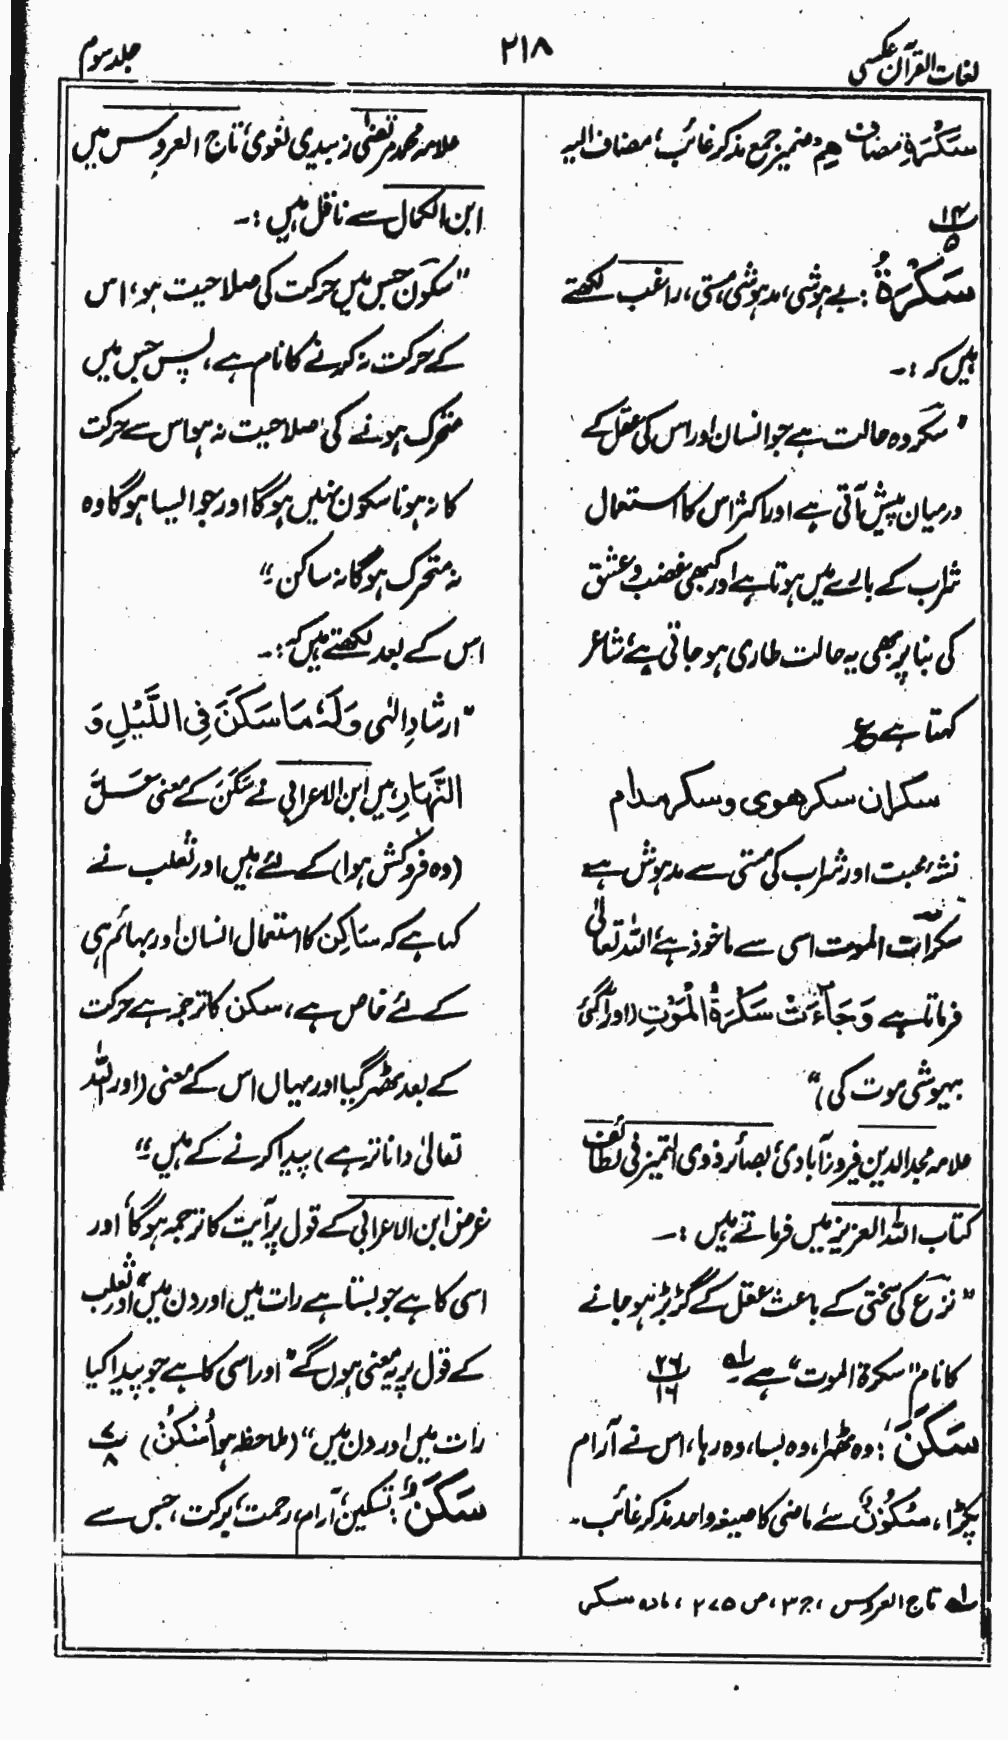 لغات القرآن عکسی
۲۱۸
جلد سوم
سَکْرَۃِ مضاف ھِمْ ضمیر جمع مذکر غائب، مضاف الیہ
۱۴
۵
سَکْرَۃٌ : بے ہوشی، مدہوشی، مستی، راغب لکھتے
ہیں کہ :۔
"سکر وہ حالت ہے جو انسان اور اس کی عقل کے
درمیان پیش آتی ہے اور اکثر اس کا استعمال
شراب کے بارے میں ہوتا ہے اور کبھی غضب و عشق
کی بنا پر بھی یہ حالت طاری ہو جاتی ہے، شاعر
کہتا ہے ع
سکران سکر ھوی و سکر مدام
نشۂ محبت اور شراب کی مستی سے مدہوش ہے
سکرات الموت اسی سے ماخوذ ہے، اللہ تعالیٰ
فرماتا ہے وَجَآءَتْ سَکْرَۃُ الْمَوْتِ (اور آگئی
بیہوشی موت کی)"
علامہ مجد الدین فیروزآبادی، بصائر ذوی التمیز فی لطائف
کتاب اللہ العزیز میں فرماتے ہیں :۔
"نزع کی سختی کے باعث عقل کے گڑبڑ ہو جانے
کا نام "سکرۃ الموت" ہے ۱ھ
۲۶
۱۶
سَکَنَ : وہ ٹھہرا، وہ بسا، وہ رہا، اس نے آرام
پکڑا، سُکُوْنٌ سے ماضی کا صیغہ واحد مذکر غائب۔
علامہ محمد مرتضیٰ زبیدی لغوی، تاج العروس میں
ابن الکمال سے ناقل ہیں :۔
"سکون جس میں حرکت کی صلاحیت ہو، اس
کے حرکت نہ کرنے کا نام ہے، پس جس میں
متحرک ہونے کی صلاحیت نہ ہو اس سے حرکت
کا نہ ہونا سکون نہیں ہوگا اور جو ایسا ہوگا وہ
نہ متحرک ہوگا نہ ساکن۔"
اس کے بعد لکھتے ہیں کہ :۔
"ارشادِ الٰہی وَلَہٗ مَا سَکَنَ فِی الَّیْلِ وَ
النَّہَارِ، میں ابن الاعرابی نے سَکَنَ کے معنی حَلَّ
(وہ فروکش ہوا) کے لئے ہیں اور ثعلب نے
کہا ہے کہ سَاکِن کا استعمال انسان اور بہائم ہی
کے لئے خاص ہے، سکن کا ترجمہ ہے حرکت
کے بعد ٹھہر گیا اور یہاں اس کے معنی (اور اللہ
تعالیٰ دانا تر ہے) پیدا کرنے کے ہیں۔"
غرض ابن الاعرابی کے قول پر آیت کا ترجمہ ہوگا "اور
اسی کا ہے جو بستا ہے رات میں اور دن میں" اور ثعلب
کے قول پر یہ معنی ہوں گے "اور اسی کا ہے جو پیدا کیا
رات میں اور دن میں" (ملاحظہ ہو اُسْکُنْ)
۷
۸
سَکَنٌ : تسکین، آرام، رحمت، برکت، جس سے
۱ھ تاج العروس، ج ۳، ص ۲۷۵، مادہ سکر